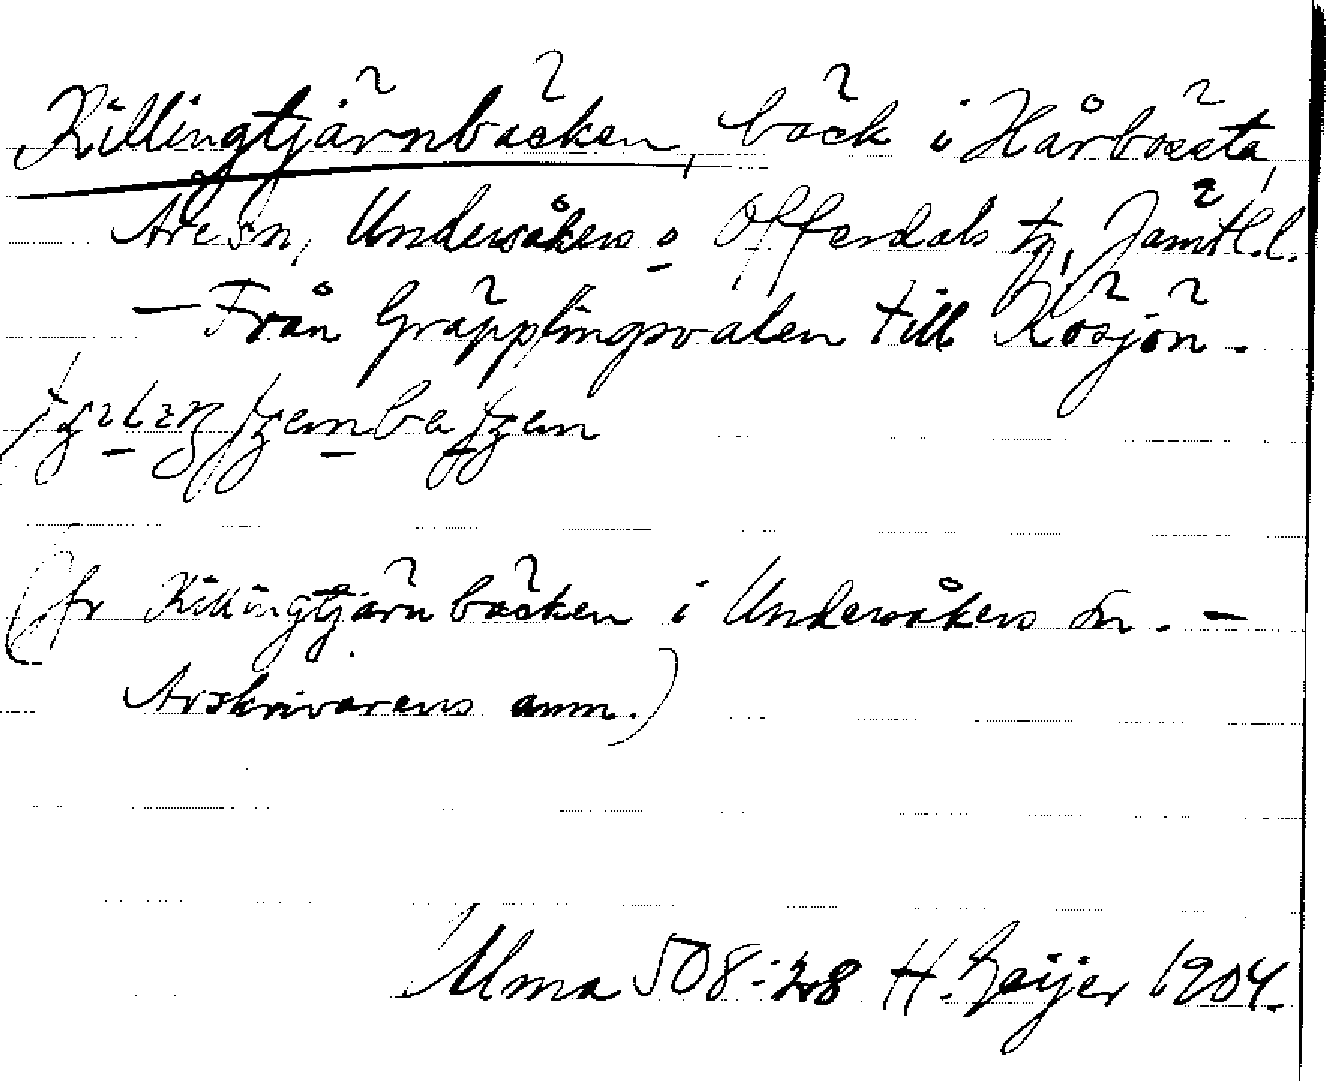 Killingtjärnbäcken, bäck i Hårbösta,
Åre sn, Undersåkers o Offerdals tg, Jämtl.l.
— Från Gräpplingsvålen till Rösjön.
(fr Killingtjärnbäcken i Undersåkers sn. —
Avskrivarens anm.)
Ulma 508:28 H. Geijer 1904.